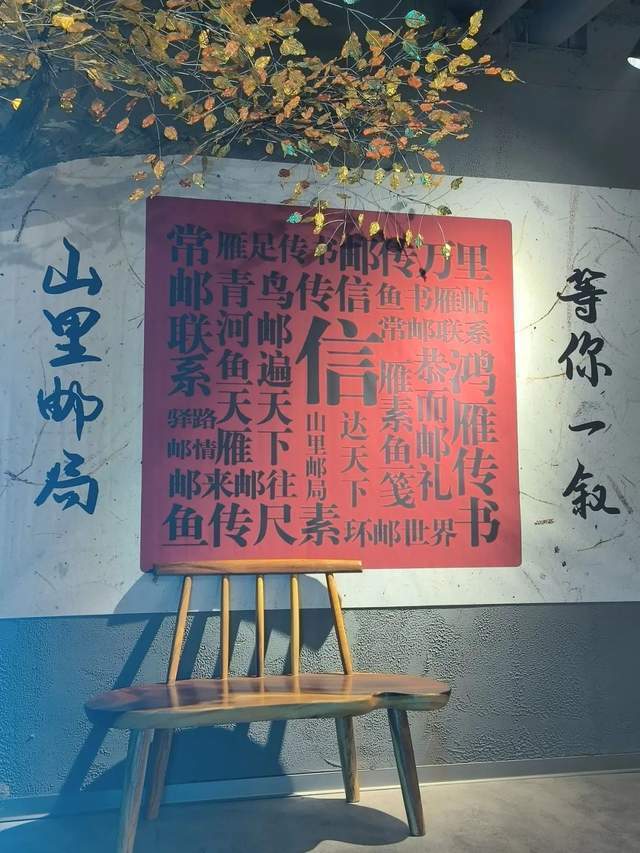 山里邮局
常邮联系
雁足传书
邮传万里
青鸟传信
鱼书雁帖
河鱼天雁
邮遍天下
信
常邮联系
雁素鱼笺
恭而邮礼
鸿雁传书
驿路邮情
山里邮局
达天下
邮来邮往
鱼传尺素
环邮世界
等你一叙